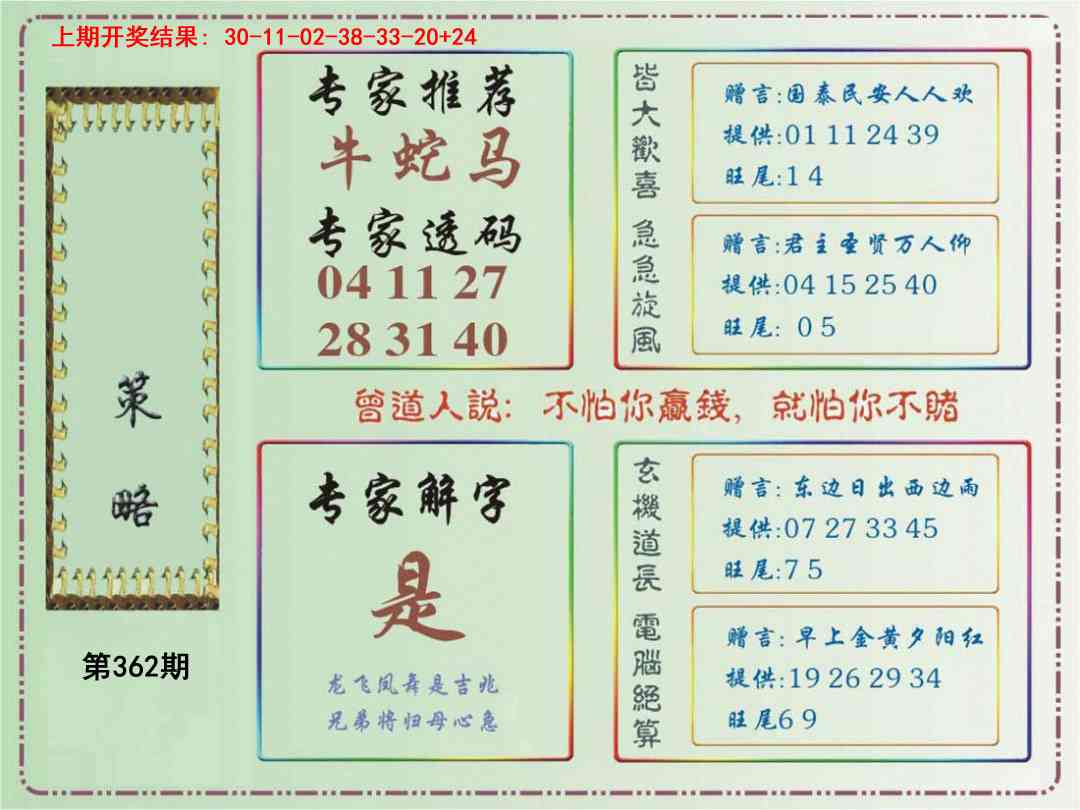 上期开奖结果: 30-11-02-38-33-20+24
策略
第362期
专家推荐
牛蛇马
专家透码
04 11 27
28 31 40
皆大歡喜
赠言:国泰民安人人欢
提供:01 11 24 39
旺尾:1 4
急急旋風
赠言:君主圣贤万人仰
提供:04 15 25 40
旺尾: 0 5
曾道人説: 不怕你贏錢, 就怕你不賭
专家解字
是
龙飞凤舞是吉兆
兄弟将归母心急
玄機道長
赠言: 东边日出西边雨
提供:07 27 33 45
旺尾:7 5
電腦絕算
赠言: 早上金黄夕阳红
提供:19 26 29 34
旺尾6 9